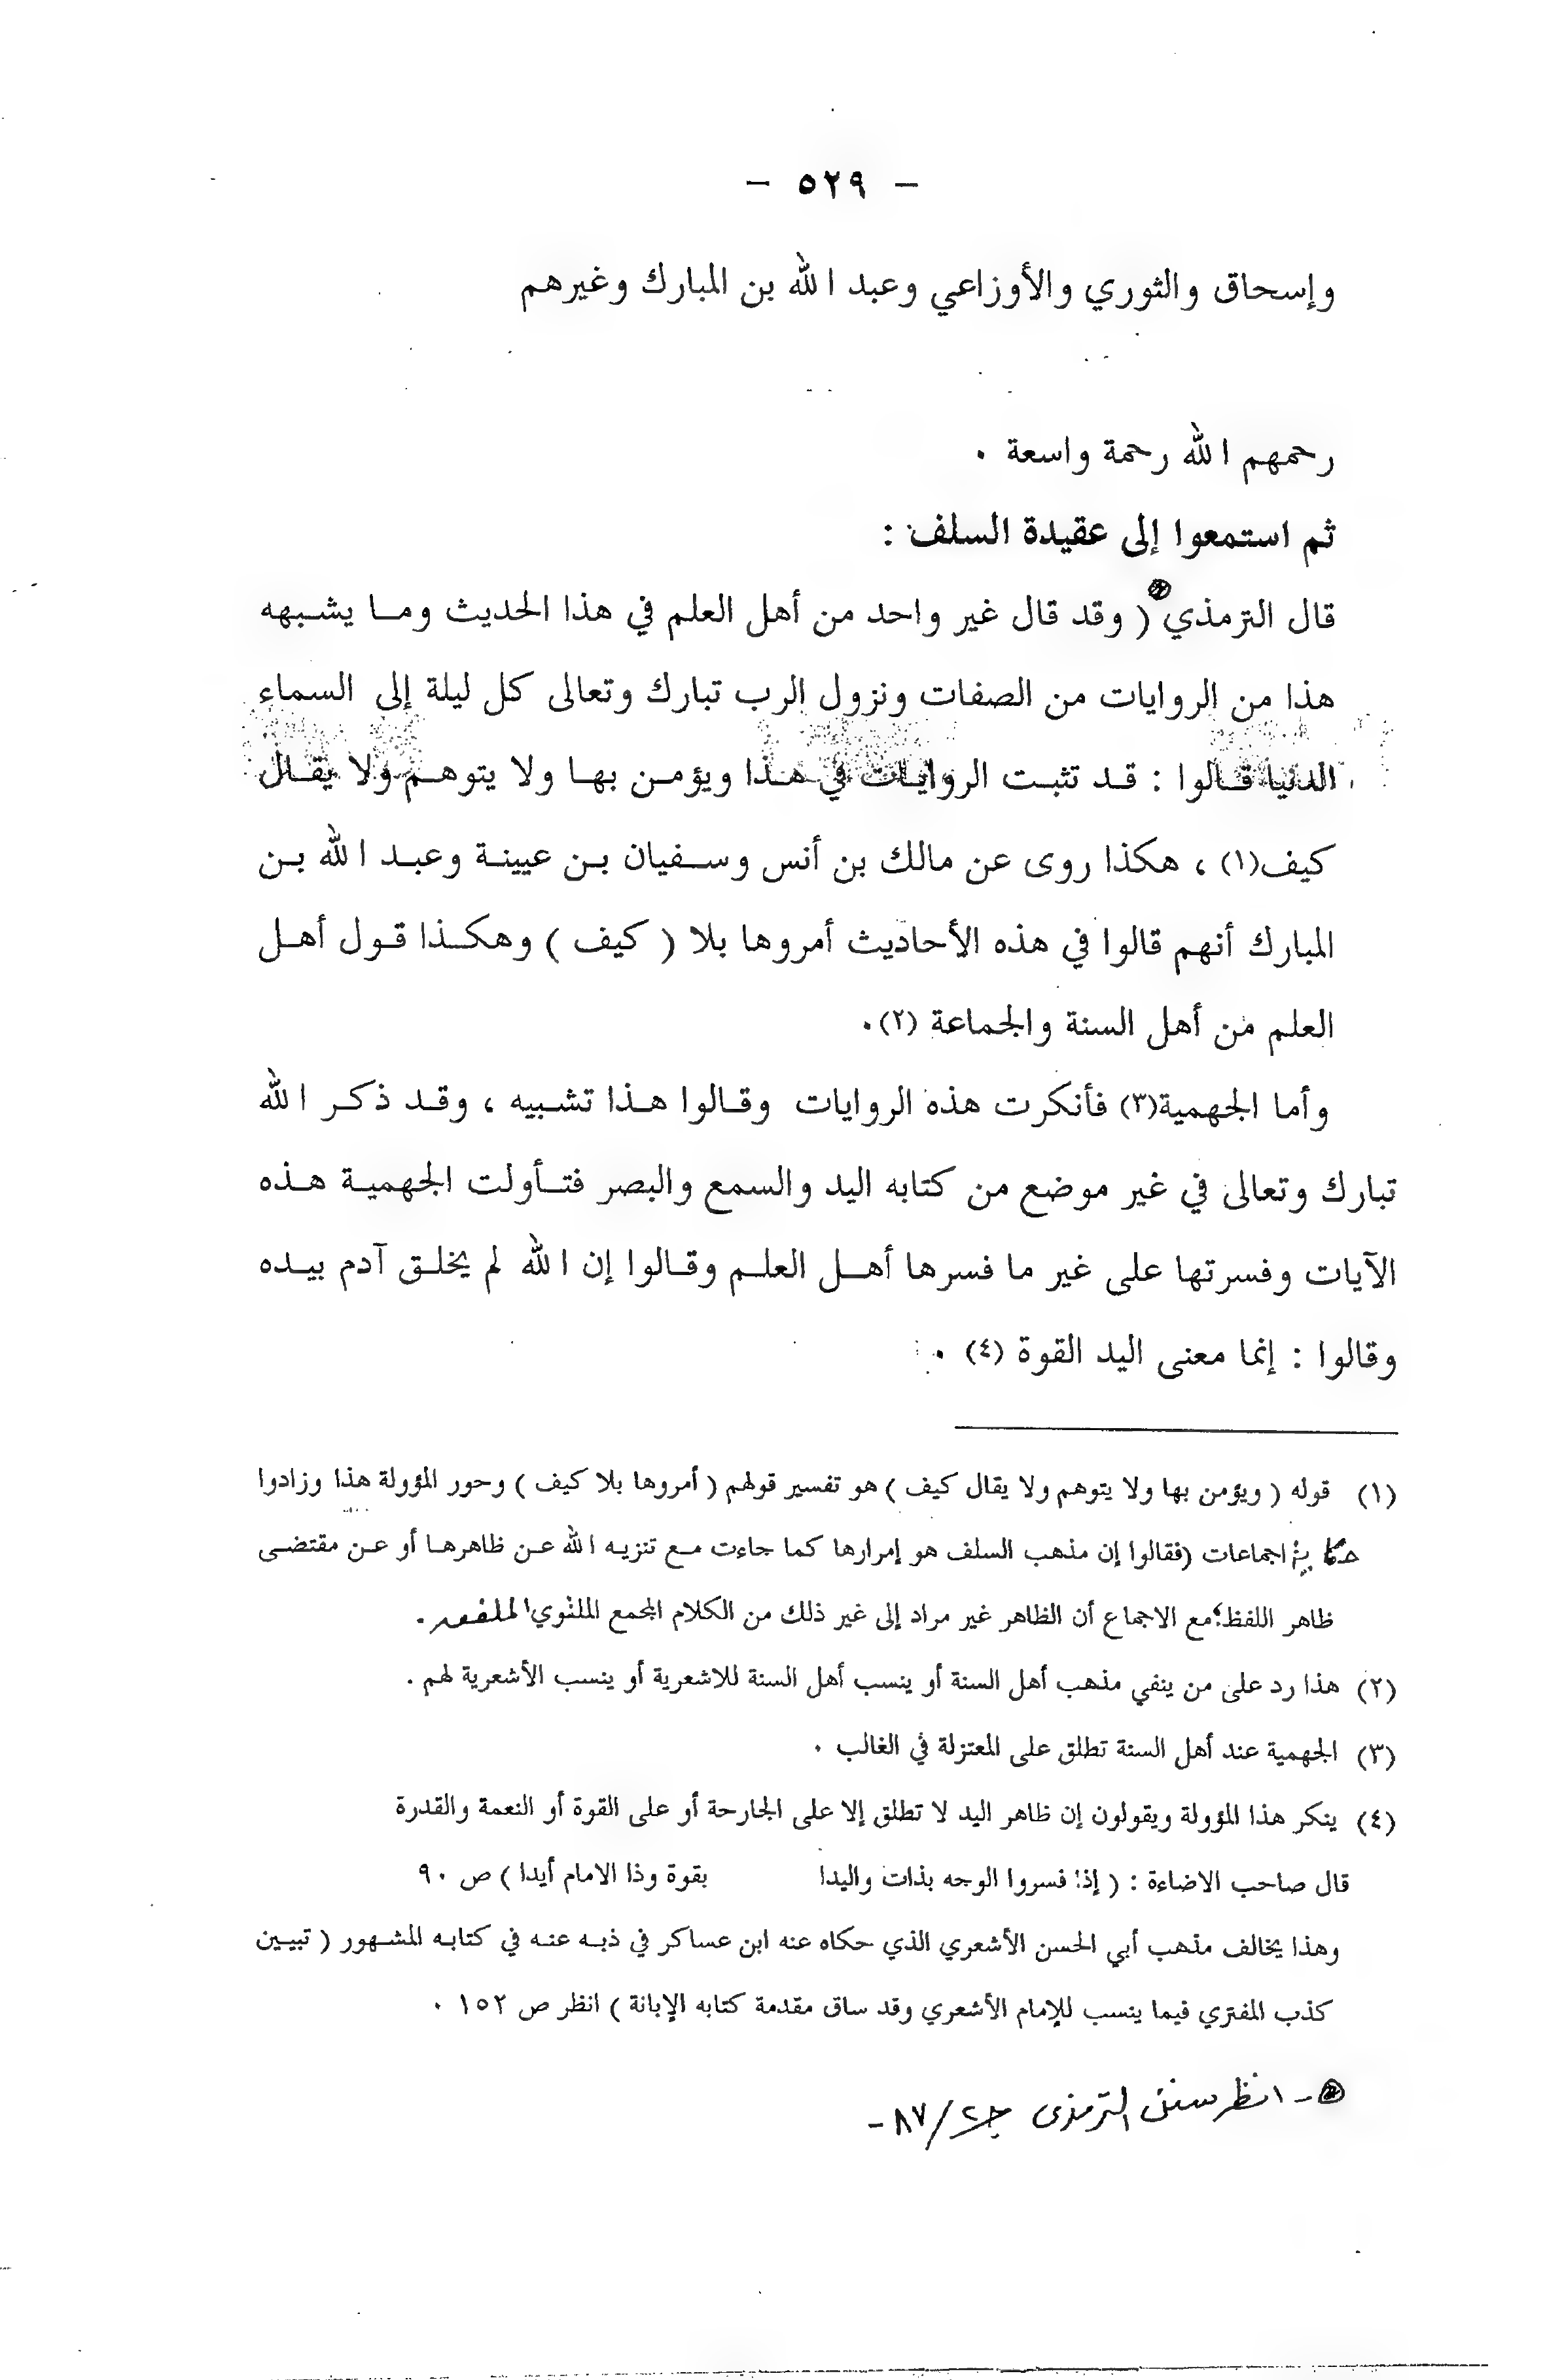 - ٥٢٩ -
وإسحاق والثوري والأوزاعي وعبد الله بن المبارك وغيرهم
رحمهم الله رحمة واسعة .
ثم استمعوا إلى عقيدة السلف :
قال الترمذي ( وقد قال غير واحد من أهل العلم في هذا الحديث وما يشبهه
هذا من الروايات من الصفات ونزول الرب تبارك وتعالى كل ليلة إلى السماء
الدنيا قالوا : قد تثبت الروايات في هذا ويؤمن بها ولا يتوهم ولا يقال
كيف(١) ، هكذا روى عن مالك بن أنس وسفيان بن عيينة وعبد الله بن
المبارك أنهم قالوا في هذه الأحاديث أمروها بلا ( كيف ) وهكذا قول أهل
العلم من أهل السنة والجماعة (٢).
وأما الجهمية(٣) فأنكرت هذه الروايات وقالوا هذا تشبيه ، وقد ذكر الله
تبارك وتعالى في غير موضع من كتابه اليد والسمع والبصر فتأولت الجهمية هذه
الآيات وفسرتها على غير ما فسرها أهل العلم وقالوا إن الله لم يخلق آدم بيده
وقالوا : إنما معنى اليد القوة (٤) .
(١) قوله ( ويؤمن بها ولا يتوهم ولا يقال كيف ) هو تفسير قولهم ( أمروها بلا كيف ) وحور المؤولة هذا وزادوا
اجماعات (فقالوا إن مذهب السلف هو إمرارها كما جاءت مع تنزيه الله عن ظاهرها أو عن مقتضى
ظاهر اللفظ؟مع الاجماع أن الظاهر غير مراد إلى غير ذلك من الكلام المجمع الملتوي .
(٢) هذا رد على من ينفي مذهب أهل السنة أو ينسب أهل السنة للاشعرية أو ينسب الأشعرية لهم .
(٣) الجهمية عند أهل السنة تطلق على المعتزلة في الغالب .
(٤) ينكر هذا المؤولة ويقولون إن ظاهر اليد لا تطلق إلا على الجارحة أو على القوة أو النعمة والقدرة
قال صاحب الاضاءة : ( إذا فسروا الوجه بذات واليدا بقوة وذا الامام أيدا ) ص ٩٠
وهذا يخالف مذهب أبي الحسن الأشعري الذي حكاه عنه ابن عساكر في ذبه عنه في كتابه المشهور ( تبيين
كذب المفتري فيما ينسب للإمام الأشعري وقد ساق مقدمة كتابه الإبانة ) انظر ص ١٥٢ .
- انظر سنن الترمذي جـ٢/٨٧-